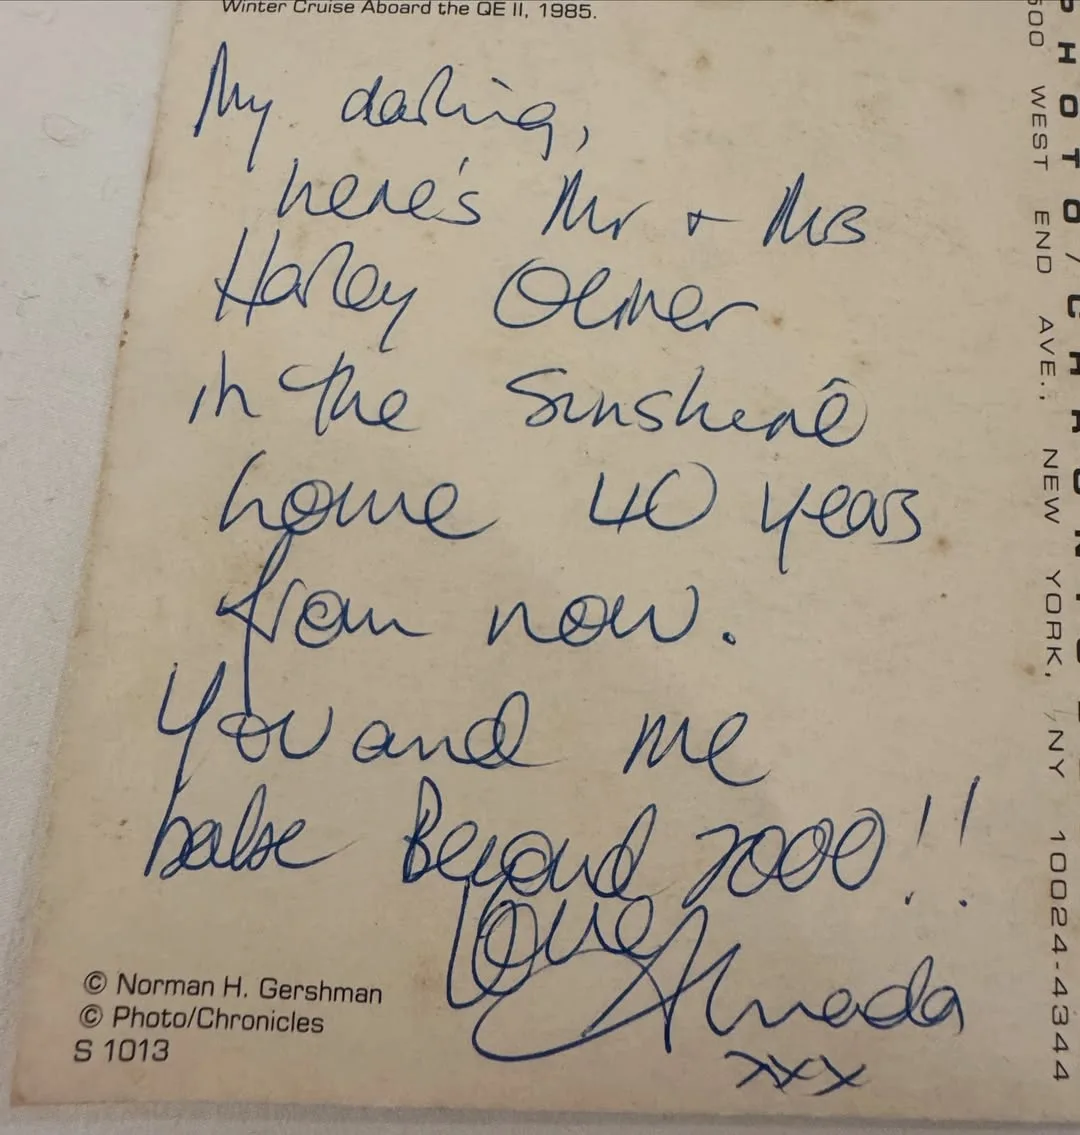 Winter Cruise Aboard the QE II, 1985.
My darling,
here's Mr + Mrs
Harley Oliver
in the Sunshine
home 40 years
from now.
You and me
babe Beyond 2000!!
love,
Amanda
xxx
© Norman H. Gershman
© Photo/Chronicles
S 1013
PHOTO/CHRON
500 WEST END AVE., NEW YORK, NY 10024-4344